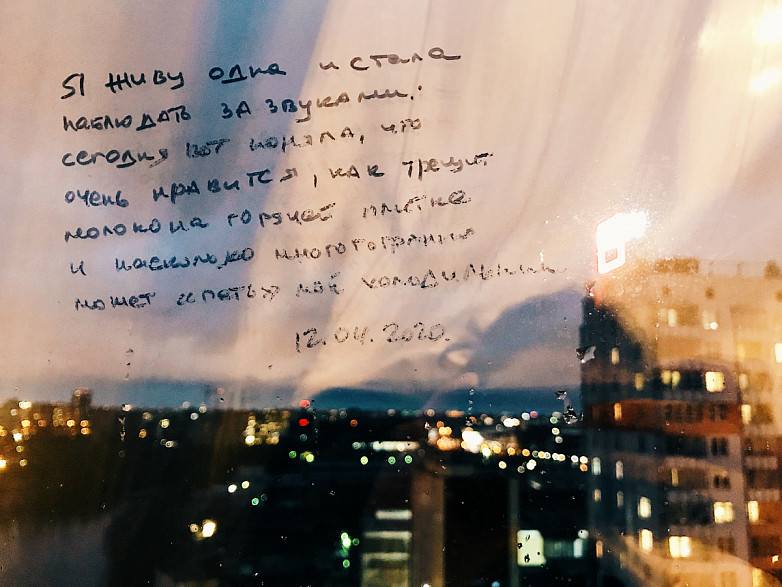 Я живу одна и стала
наблюдать за звуками:
сегодня вот поняла, что
очень нравится, как трещит
молоко на горячей плитке
и насколько многогранно
может "петь" мой холодильник.
12.04.2020.